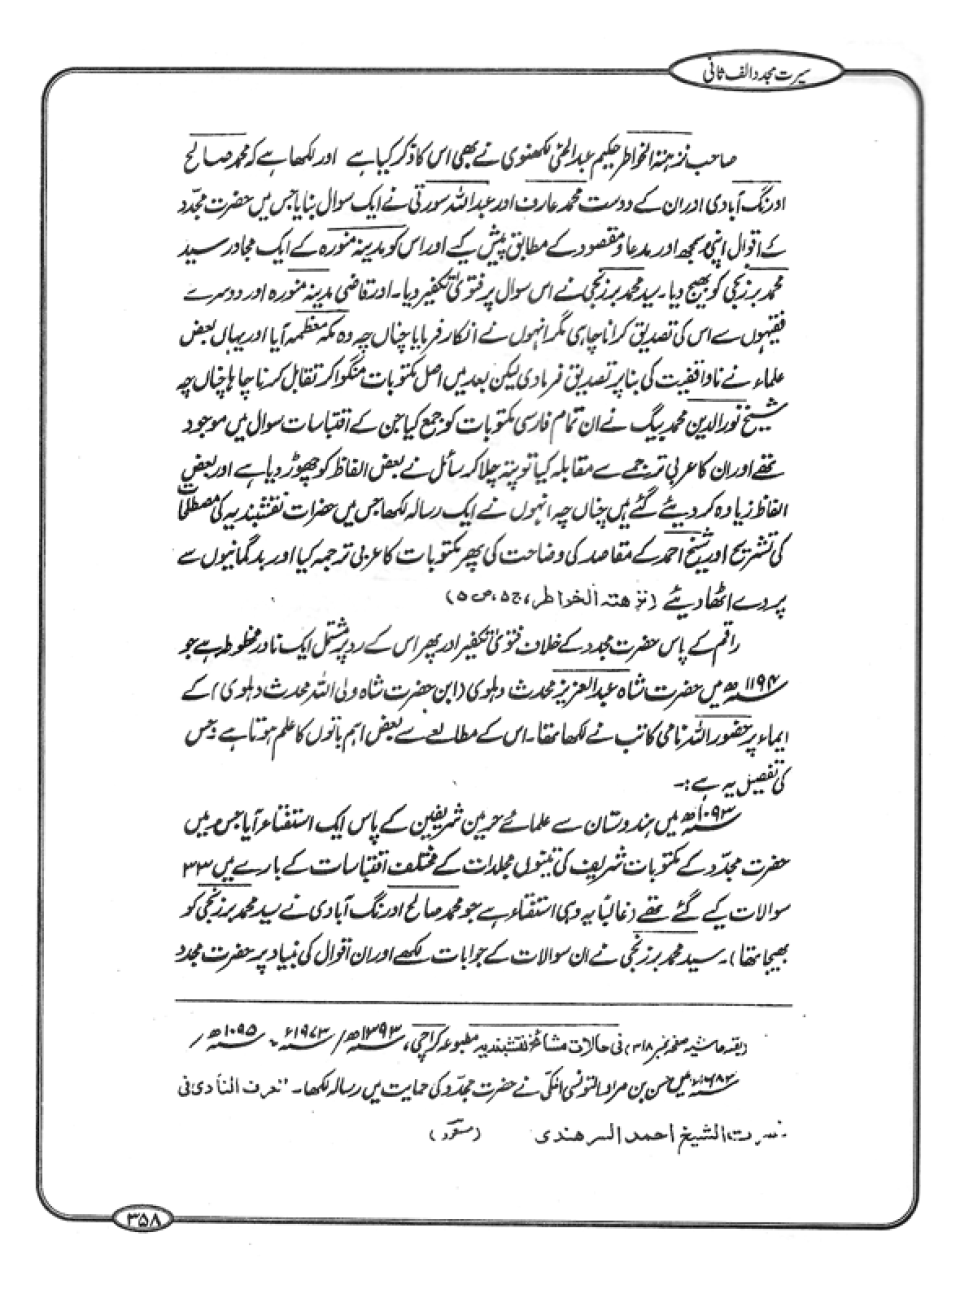 سیرت مجدد الف ثانی
صاحب نزہتہ الخواطر حکیم عبدالحئی لکھنوی نے بھی اس کا ذکر کیا ہے اور لکھا ہے کہ محمد صالح
اورنگ آبادی اور ان کے دوست محمد عارف اور عبداللہ سورتی نے ایک سوال بنایا جس میں حضرت مجدد
کے اقوال اپنی سمجھ اور مدعا و مقصود کے مطابق پیش کیے اور اس کو مدینہ منورہ کے ایک مجاور سید
محمد برزنجی کو بھیج دیا۔ سید محمد برزنجی نے اس سوال پر فتویٰ تکفیر دیا۔ اور قاضی مدینہ منورہ اور دوسرے
فقیہوں سے اس کی تصدیق کرانا چاہی مگر انہوں نے انکار فرمایا چناں چہ وہ مکہ معظمہ آیا اور یہاں بعض
علماء نے ناواقفیت کی بنا پر تصدیق فرما دی لیکن بعد میں اصل مکتوبات منگوا کر تقابل کرنا چاہا چناں چہ
شیخ نورالدین محمد بیگ نے ان تمام فارسی مکتوبات کو جمع کیا جن کے اقتباسات سوال میں موجود
تھے اور ان کا عربی ترجمے سے مقابلہ کیا تو پتہ چلا کہ سائل نے بعض الفاظ کو چھوڑ دیا ہے اور بعض
الفاظ زیادہ کر دیئے گئے ہیں چناں چہ انہوں نے ایک رسالہ لکھا جس میں حضرات نقشبندیہ کی مصطلحات
کی تشریح اور شیخ احمد کے مقاصد کی وضاحت کی پھر مکتوبات کا عربی ترجمہ کیا اور بدگمانیوں سے
پردے اٹھا دیئے (نزھتہ الخواطر، ج ۵، ص ۵)
راقم کے پاس حضرت مجدد کے خلاف فتویٰ تکفیر اور پھر اس کے رد پر مشتمل ایک نادر مخطوطہ ہے جو
۱۱۹۴ھ میں حضرت شاہ عبدالعزیز محدث دہلوی (ابن حضرت شاہ ولی اللہ محدث دہلوی) کے
ایماء پر حضور اللہ نامی کاتب نے لکھا تھا۔ اس کے مطالعے سے بعض اہم باتوں کا علم ہوتا ہے جس
کی تفصیل یہ ہے :۔
۱۰۹۳ھ میں ہندوستان سے علمائے حرمین شریفین کے پاس ایک استفتاء آیا جس میں
حضرت مجدد کے مکتوبات شریف کی تینوں مجلدات کے مختلف اقتباسات کے بارے میں ۳۳
سوالات کیے گئے تھے (غالباً یہ وہی استفتاء ہے جو محمد صالح اورنگ آبادی نے سید محمد برزنجی کو
بھیجا تھا)۔ سید محمد برزنجی نے ان سوالات کے جوابات لکھے اور ان اقوال کی بنیاد پر حضرت مجدد
بقیہ حاشیہ صفحہ نمبر ۳۱۸) فی حالات مشائخ نقشبندیہ مطبوعہ کراچی، ۱۳۹۳ھ / ۱۹۷۳ء ۔ ۱۰۹۵ھ /
میں حسن بن مراد التونسی المکی نے حضرت مجدد کی حمایت میں رسالہ لکھا۔ "عرف النادی فی
نصرت الشیخ احمد السرھندی (مسعود)
۳۵۸